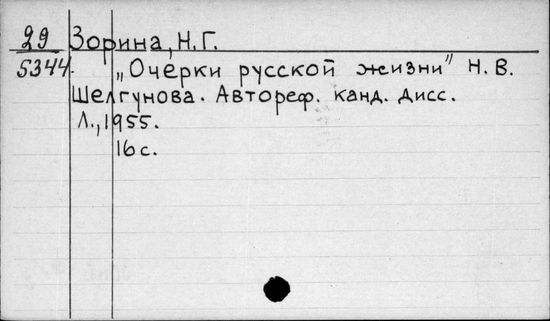 29 Зорина, Н.Г.
5344. „Очерки русской жизни" Н. В.
Шелгунова. Автореф. канд. дисс.
Л., 1955.
16 с.